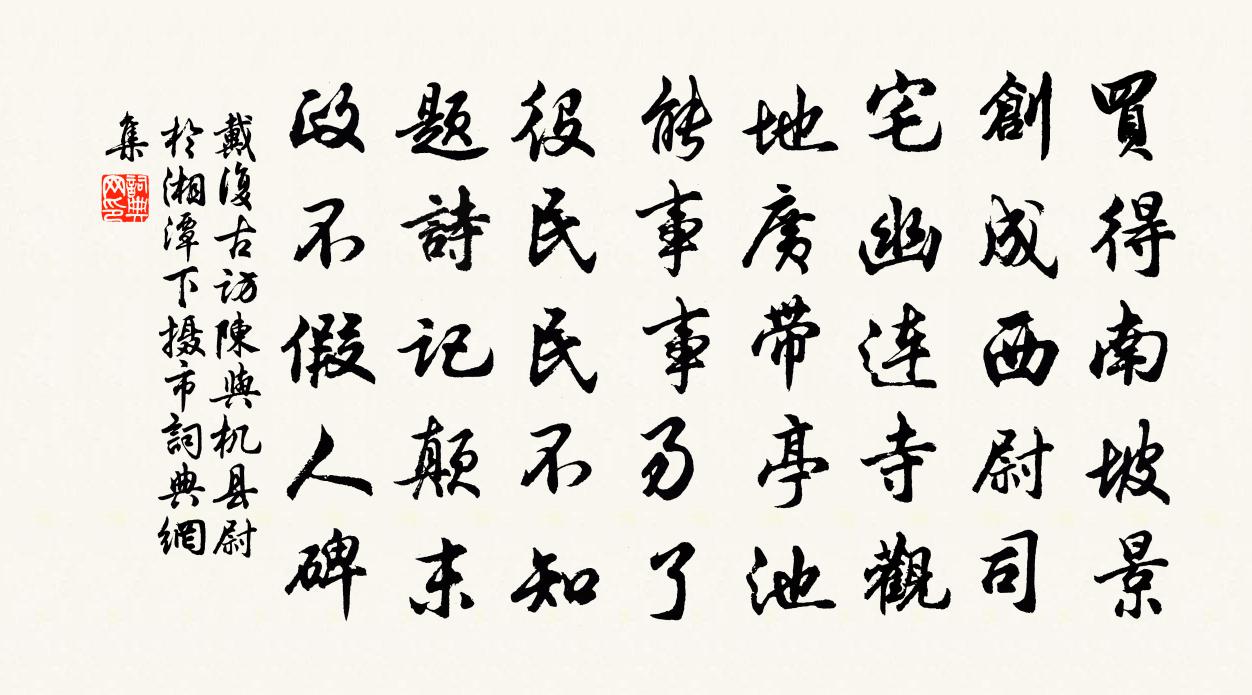 買得南坡景
創成西尉司
宅幽連寺觀
地廣带亭池
能事事易了
役民民不知
題詩記顛末
政不假人碑
戴復古訪陳與机县尉
於湘潭下摄市詞典網
集
詞典网印